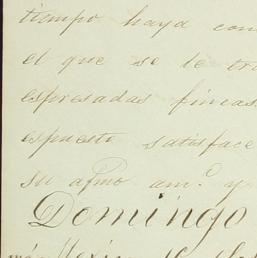 tiempo haya con
el que se le tr
espresadas fincas
espuesto satisface
su afmo am.º y
Domingo